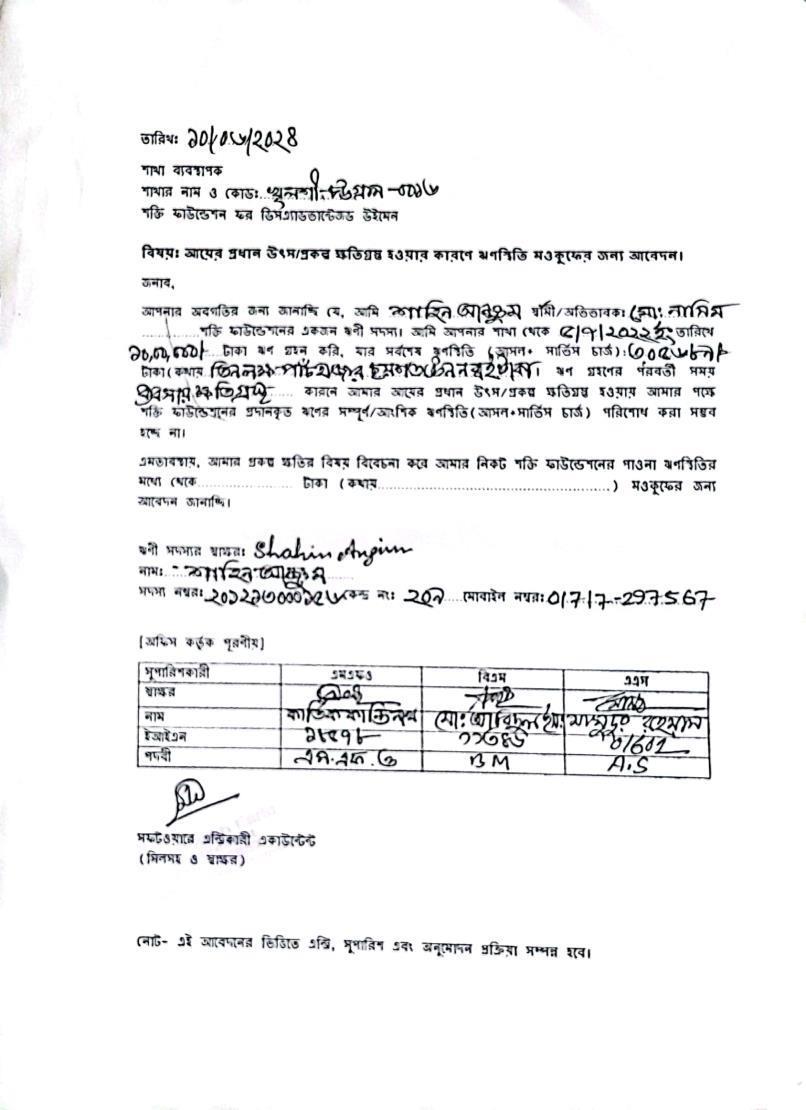 তারিখঃ ১০/০৬/২০২৪
শাখা ব্যবস্থাপক
শাখার নাম ও কোড: খুলশী-০০১৬
শক্তি ফাউন্ডেশন ফর ডিসএ্যাডভান্টেজড উইমেন
বিষয়: আয়ের প্রধান উৎস/প্রকল্প ক্ষতিগ্রস্থ হওয়ার কারণে ঋণস্থিতি মওকুফের জন্য আবেদন।
জনাব,
আপনার অবগতির জন্য জানাচ্ছি যে, আমি শাহিন আঞ্জুম স্বামী/অভিভাবক: মো: নাসিম
শক্তি ফাউন্ডেশনের একজন ঋণী সদস্য। আমি আপনার শাখা থেকে ৫/৭/২০২২ইং তারিখে
১০,০০,০০০/- টাকা ঋণ গ্রহন করি, যার সর্বশেষ ঋণস্থিতি (আসল+ সার্ভিস চার্জ):
টাকা (কথায় তিন লক্ষ পাঁচ হাজার ছয়শত টাকা)। ঋণ গ্রহণের পরবর্তী সময়
ব্যবসায় ক্ষতিগ্রস্থ কারনে আমার আয়ের প্রধান উৎস/প্রকল্প ক্ষতিগ্রস্থ হওয়ায় আমার পক্ষে
শক্তি ফাউন্ডেশনের প্রদানকৃত ঋণের সম্পূর্ণ/আংশিক ঋণস্থিতি (আসল+সার্ভিস চার্জ) পরিশোধ করা সম্ভব
হচ্ছে না।
এমতাবস্থায়, আমার প্রকল্প ক্ষতির বিষয় বিবেচনা করে আমার নিকট শক্তি ফাউন্ডেশনের পাওনা ঋণস্থিতির
মধ্যে থেকে.................... টাকা (কথায়..................................................) মওকুফের জন্য
আবেদন জানাচ্ছি।
ঋণী সদস্যর স্বাক্ষর: Shahin Anjum
নাম: শাহিন আঞ্জুম
সদস্য নম্বর: কেন্দ্র নং: ২০৭ মোবাইল নম্বর: 01717-297567
[অফিস কর্তৃক পূরণীয়]
সুপারিশকারী এমএফও বিএম এএস
স্বাক্ষর
নাম কার্তিক কান্তি নাথ মো: মাসুদুর রহমান
ইআইএন 01601
পদবী এম.এফ.ও BM A.S
সফটওয়ারে এন্ট্রিকারী একাউন্টেন্ট
(সিলসহ ও স্বাক্ষর)
নোট- এই আবেদনের ভিত্তিতে এন্ট্রি, সুপারিশ এবং অনুমোদন প্রক্রিয়া সম্পন্ন হবে।